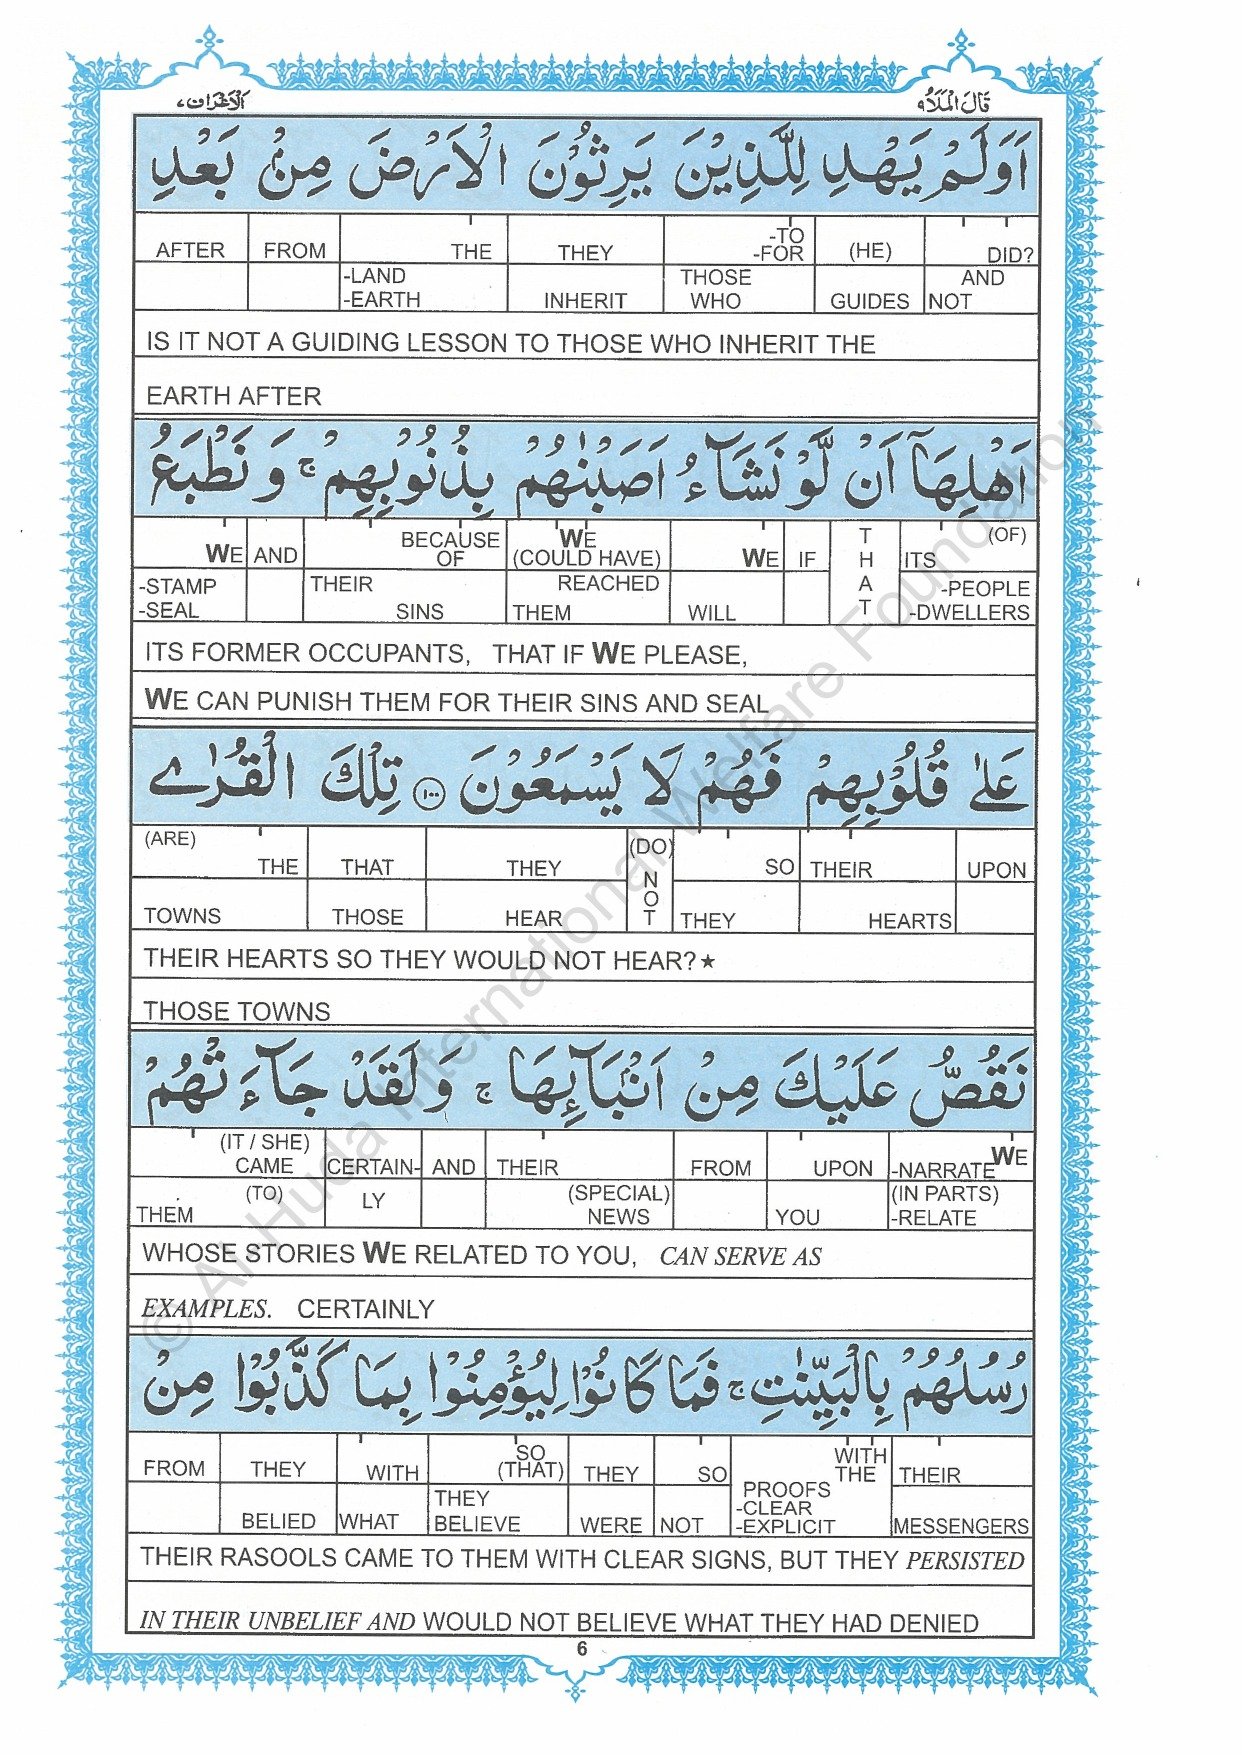 الاعراف ٧ قال الملأ ٩
اَوَلَمْ يَهْدِ لِلَّذِيْنَ يَرِثُوْنَ الْاَرْضَ مِنْۢ بَعْدِ
AFTER FROM THE THEY -TO -FOR (HE) DID?
-LAND -EARTH INHERIT THOSE WHO GUIDES AND NOT
IS IT NOT A GUIDING LESSON TO THOSE WHO INHERIT THE
EARTH AFTER
اَهْلِهَاۤ اَنْ لَّوْ نَشَآءُ اَصَبْنٰهُمْ بِذُنُوْبِهِمْ ۚ وَ نَطْبَعُ
WE AND BECAUSE OF WE (COULD HAVE) WE IF THAT ITS (OF)
-STAMP -SEAL THEIR SINS REACHED THEM WILL -PEOPLE -DWELLERS
ITS FORMER OCCUPANTS, THAT IF WE PLEASE,
WE CAN PUNISH THEM FOR THEIR SINS AND SEAL
عَلٰى قُلُوْبِهِمْ فَهُمْ لَا يَسْمَعُوْنَ ١٠٠ تِلْكَ الْقُرٰى
(ARE) THE THAT THEY (DO) NOT SO THEIR UPON
TOWNS THOSE HEAR THEY HEARTS
THEIR HEARTS SO THEY WOULD NOT HEAR?★
THOSE TOWNS
نَقُصُّ عَلَيْكَ مِنْ اَنْۢبَآئِهَا ۚ وَلَقَدْ جَآءَتْهُمْ
(IT / SHE) CAME CERTAIN- AND THEIR FROM UPON WE -NARRATE
THEM (TO) LY (SPECIAL) NEWS YOU (IN PARTS) -RELATE
WHOSE STORIES WE RELATED TO YOU, CAN SERVE AS
EXAMPLES. CERTAINLY
رُسُلُهُمْ بِالْبَيِّنٰتِ ۚ فَمَا كَانُوْا لِيُؤْمِنُوْا بِمَا كَذَّبُوْا مِنْ
FROM THEY WITH SO (THAT) THEY SO WITH THE THEIR
BELIED WHAT THEY BELIEVE WERE NOT PROOFS -CLEAR -EXPLICIT MESSENGERS
THEIR RASOOLS CAME TO THEM WITH CLEAR SIGNS, BUT THEY PERSISTED
IN THEIR UNBELIEF AND WOULD NOT BELIEVE WHAT THEY HAD DENIED
6
© Al-Huda International Welfare Foundation